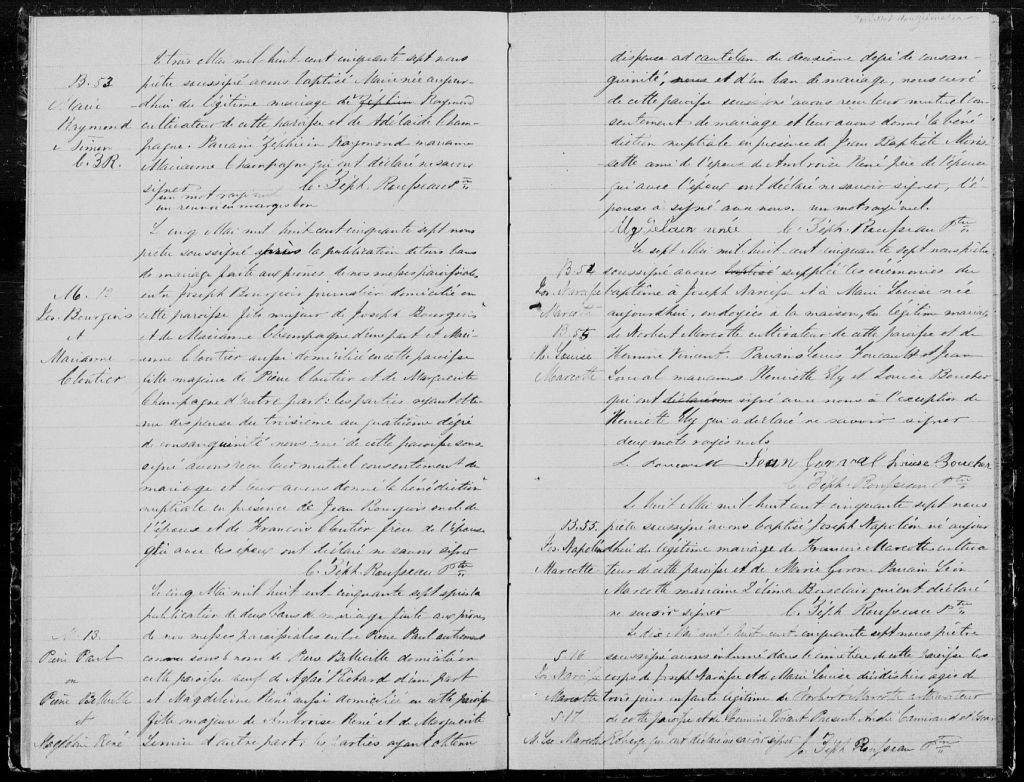 B. 53
Marie
Raymond
Simon
C. Z. R.
Le trois Mai mil huit cent cinquante sept nous
prêtre soussigné avons baptisé Marie née aujour-
d'hui du légitime mariage de Zéphirin Raymond
cultivateur de cette paroisse et de Adélaïde Cham-
pagne. Parrain Zéphirin Raymond marraine
Marianne Champagne qui ont déclaré ne savoir
signer
un mot rayé nul
un renvoi en marge bon
C. Zéph. Rousseau Ptre
M. 12
Jos. Bourgeois
et
Marianne
Cloutier
Le cinq Mai mil huit cent cinquante sept nous
prêtre soussigné après la publication de trois bans
de mariage faite aux prônes de nos messes paroissiales
entre Joseph Bourgeois journalier domicilié en
cette paroisse fils majeur de Joseph Bourgeois
et de Marianne Champagne d'une part et Mari-
anne Cloutier aussi domiciliée en cette paroisse
fille majeure de Pierre Cloutier et de Marguerite
Champagne d'autre part: les parties ayant obte-
nu dispense du troisième au quatrième dégré
de consanguinité nous curé de cette paroisse sous-
signé avons reçu leur mutuel consentement de
mariage et leur avons donné la bénédiction
nuptiale en présence de Jean Bourgeois oncle de
l'époux et de François Cloutier frère de l'épouse
qui avec les époux ont déclaré ne savoir signer
C. Zéph. Rousseau Ptre
M. 13.
Pierre Paul
ou
Pierre Belleville
et
Magdeleine René
Le cinq Mai mil huit cent cinquante sept après la
publication de deux bans de mariage faite aux prônes
de nos messes paroissiales entre Pierre Paul autrement
connu sous le nom de Pierre Belleville domicilié en
cette paroisse veuf de Aglaé Richard d'une part
et Magdeleine René aussi domiciliée en cette paroisse
fille majeure de Ambroise René et de Marguerite
d'autre part; les parties ayant obtenu
dispense ad cautelam du deuxième dégré de consan-
guinité, nous et d'un ban de mariage, nous curé
de cette paroisse soussigné avons reçu leur mutuel con-
sentement de mariage et leur avons donné la béné-
diction nuptiale en présence de Jean Baptiste Moris-
sette ami de l'époux de Ambroise René père de l'épouse
qui avec l'époux ont déclaré ne savoir signer, l'é-
pouse a signé avec nous. un mot rayé nul.
C. Zéph. Rousseau Ptre
B. 54
Jos. Narcisse
Marcotte
B. 55
M. Louise
Marcotte
Le sept Mai mil huit cent cinquante sept nous prêtre
soussigné avons baptisé suppléé les cérémonies du
baptême à Joseph Narcisse et à Marie Louise nés
aujourd'hui, ondoyés à la maison, du légitime mariage
de Norbert Marcotte cultivateur de cette paroisse et de
Hermine Vincent. Parrains Louis Foucault et Jean
Corval marraines Henriette Ely et Louise Boucher
qui ont déclaré ne signé avec nous à l'exception de
Henriette Ely qui a déclaré ne savoir signer
deux mots rayés nuls
L. Foucault Jean Corval Louise Boucher
C. Zéph. Rousseau Ptre
B. 55.
Jos. Napoléon
Marcotte
Le huit Mai mil huit cent cinquante sept nous
prêtre soussigné avons baptisé Joseph Napoléon né aujour-
d'hui du légitime mariage de Francois Marcotte cultiva-
teur de cette paroisse et de Marie Caron. Parrain
Marcotte marraine Zélima Bosclair qui ont déclaré
ne savoir signer C. Zéph. Rousseau Ptre
S. 16
Jos. Narcisse
Marcotte
S. 17
M. Lse Marcotte
Le dix Mai mil huit cent cinquante sept nous prêtre
soussigné avons inhumé dans le cimetière de cette paroisse les
corps de Joseph Narcisse et de Marie Louise décédés hier agés de
trois jours enfants légitime de Norbert Marcotte cultivateur
de cette paroisse et de Hermine Vincent. Présents André Camirand et
Roberge qui ont déclaré ne savoir signer
C. Zéph. Rousseau Ptre